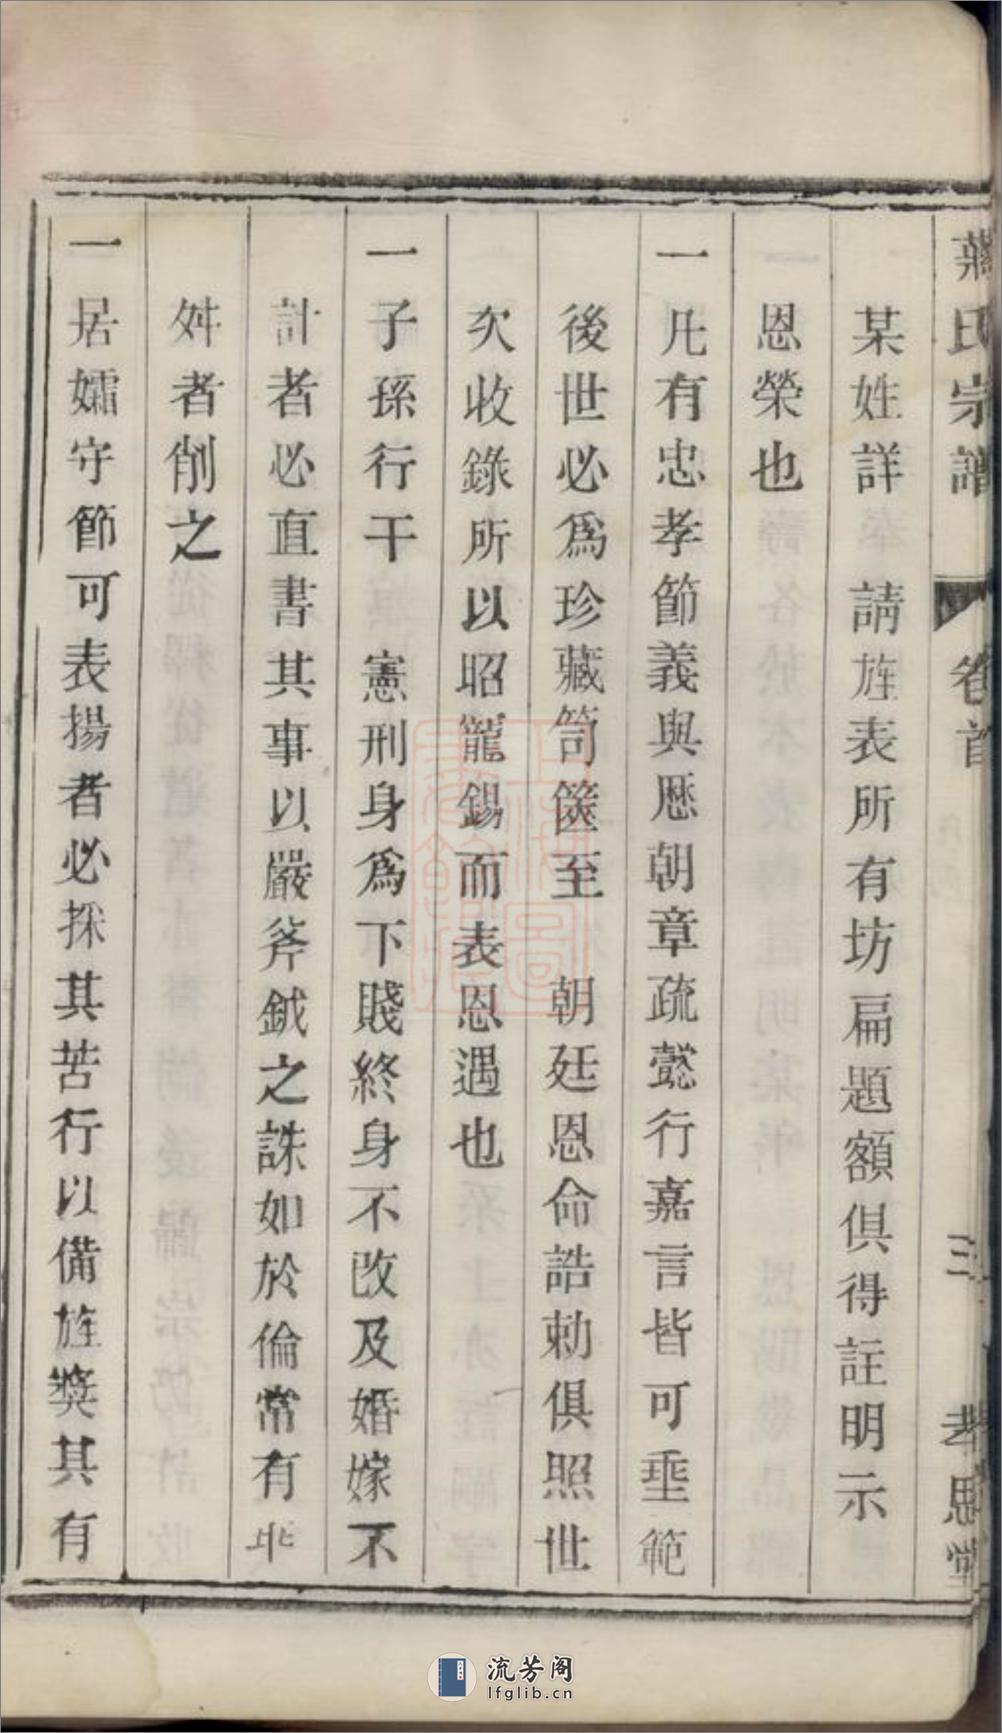 蔣氏宗譜 卷首 三 孝思堂
某姓詳 請旌表所有坊扁題額俱得註明示
恩榮也
一凡有忠孝節義與歷朝章疏懿行嘉言皆可垂範
後世必爲珍藏笥篋至 朝廷恩命誥勅俱照世
次收錄所以昭寵錫而表恩遇也
一子孫行干 憲刑身爲下賤終身不改及婚嫁不
計者必直書其事以嚴斧鉞之誅如於倫常有乖
舛者削之
一居孀守節可表揚者必採其苦行以備旌獎其有
流芳阁
lfglib.cn